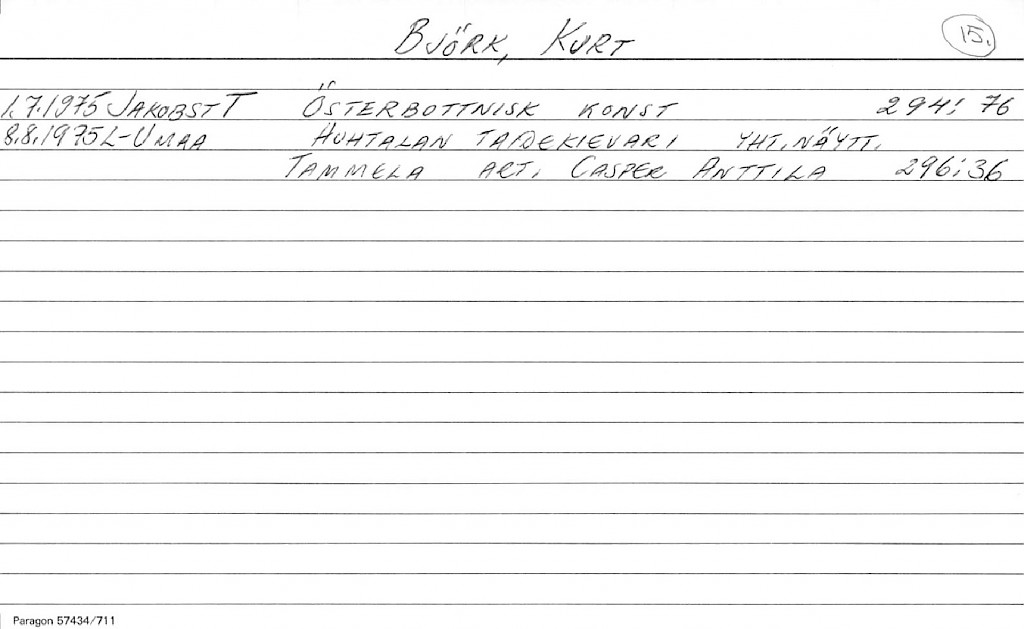 Björk, Kurt 15.
1.7.1975 Jakobst T Österbottnisk konst 294: 76
8.8.1975 L-Umaa Huhtalan taidekievari yht.näytt.
Tammela art. Casper Anttila 296:36
Paragon 57434/711